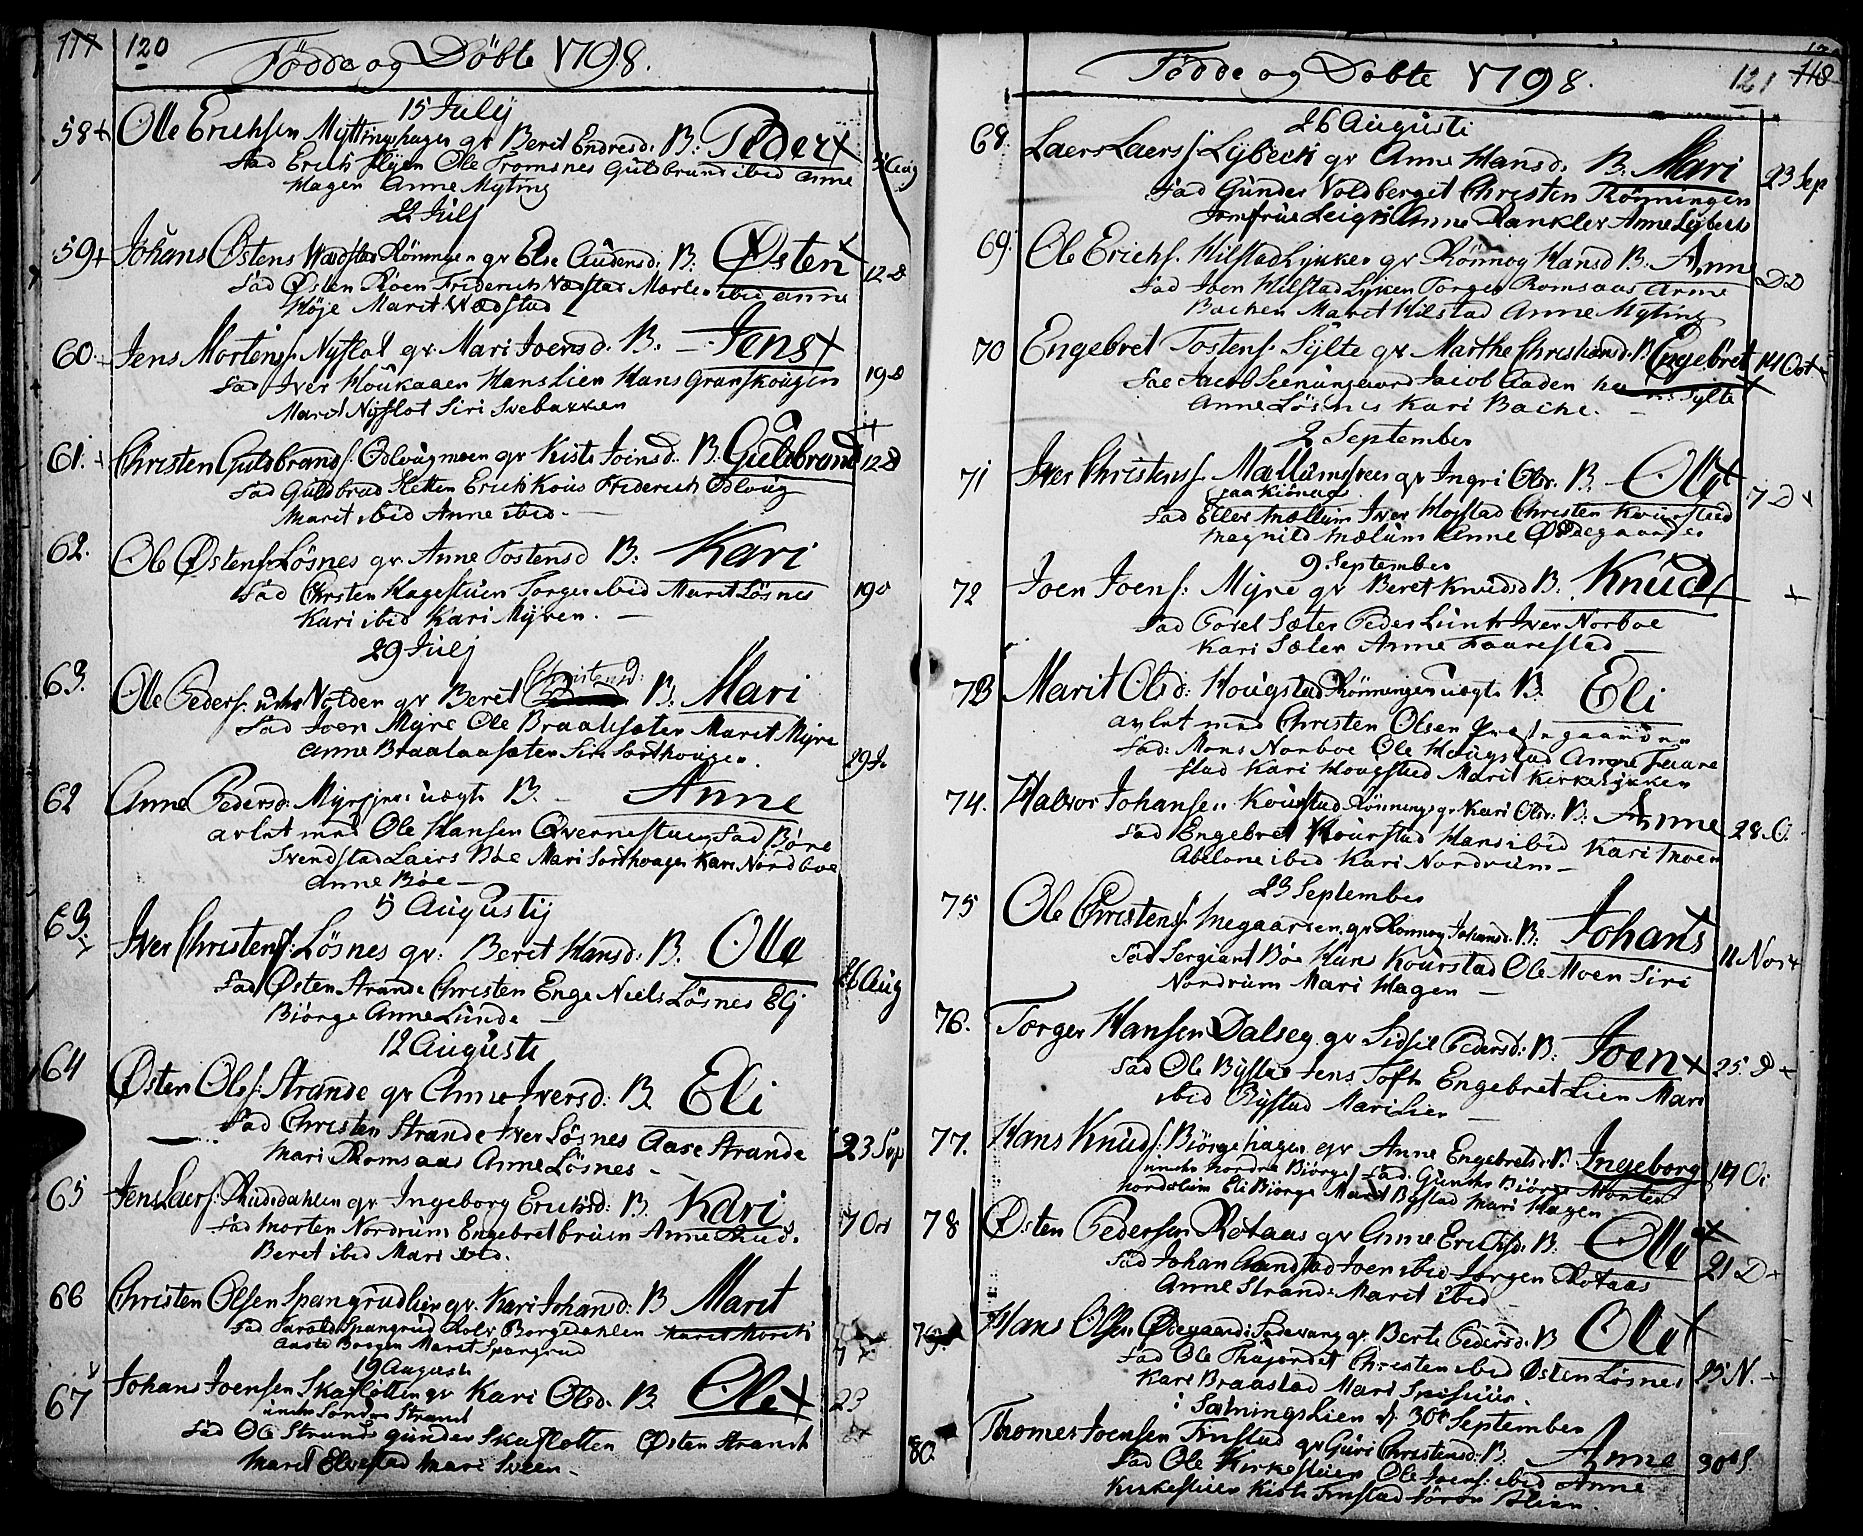 117 120
Födde og Döbte 1798.
15 July
58 + Olle Erichsen Myttingshagen gv Berit Endresd. B: Peder +
Fad Erich Flyen Ole Tromsnes Guldbrand ibid Anne 5 Aug
Hagen Anne Myting
22 July
59 + Johans Østens Wædstad Röningen gv Else Audensd: B: Østen +
Fad Østen Röen Friderich Wædstad Morten ibid Anne 12 D
Höje Marit Wædstad
60. Jens Mortens. Nyflot gv. Mari Joensd. B. Jens +
Fad Iver Houkaaen Hans Lien Hans Granskougen 19 D
Marit Nyflot Siri Svebakken
61. + Christen Guldbrands. Odlougmoen gv Kisti Joensd. B. Guldbrand 12 D
Fad Guldbrand Sletten Erich Kous Friderich Odloug
Marit ibid Anne ibid.
62. Ole Østens. Lösnes gv Anne Tostensd B: Kari
Fad Chrsten Hagestuen Torger ibid Marit Lösnes 19 D
Kari ibid Kari Myren.
29 July
63. Ole Peders. Nolden gv Beret Christensd: B. Mari
Fad Joen Myre Ole Braatesæter Marit Myre
Anne Braataasæter Siri Sorthougen. 29 J.
62 Anne Pedersd. ugt. B. Anne
avlat med Ole Hansen Qvernestuen Fad Böre
Svendstad Laers Böe Mari Sorthougen Kari Nordboe
Anne Böe
5 Augustij
63. Iver Christens: Lösnes gv: Beret Hansd: B. Olle
Fad Østen Strande Christen Enge Niels Lösnes Elj 26 Aug
Biörge Anne Lunde
12 Augusti
64 Østen Oles: Strande gv Anne Iversd: B. Eli
Fad Christen Strande Iver Lösnes Aase Strande 23 Sep
Mari Romsaas Anne Lösnes
65 Jens Laers: Rudsdahlen gv Ingeborg Erichsd: B. Kari
Fad Morten Nordrum Engebret bruun Anne Rud. 7 Oct
Beret ibid Mari ibid.
66 Christen Olsen Spangrudlien gv. Kari Johansd: B Marit
Fad Spangrud Rolv Borgedahlen
Borgen Marit Spangrud
19 Augusti
67 Johans Joensen Skaflotten gv Kari Olsd. B. Ole + 23
under Söndre Strand
Fad Ole Strande Gunder Skaflotten Østen Strande
Marit Elvestad Mari Sveen
Födde og Dobte 1798. 121 118
26 Augusti
68 Laers Laers: Lybech gv Anne Hansd. B. Mari
Fad Gunder Voldberget Christen Rönningen 23 Sep
Jomfrue Leigh Anne Rankler Anne Lybech
69. Ole Erichs. Hilstad Lykken gv Rönnog Hansd B. Anne
Fad Joen Hilstad Lyken Torger Romsaas Anne D D
Bachen Marit Hilstad Anne Myting
70 Engebret Tostens. Sylte gv Marthe Christiansd. B. Engebret 14 Oct +
Fad Jacob Aaden Sylte
Anne Lösnes Kari Bache.
2 September
71 Iver Christens. Mællumsveen gv Ingri Olsd. B. Olle +
Fad Eller Mællum Iver Hofstad Christen Kourstad 7 D +
Magnild Mælum Anne Ødegaarden
9 September
72 Joen Joens: Myre gv Beret Knudsd B. Knud + +
Fad Sæter Peder Iver Norboe
Kari Sæter Anne Faarestad
73 Marit Olsd: Hougstad Rönningen uægte B. Eli
avlet med Christen Olsen
Fad: Mons Norboe Ole Hougstad Anne Faare
stad Kari Hougstad Marit Kirkelykken
74. Halvor Johansen Kourstad Rönning gv Kari Olsd. B: Anne 28. O.
Fad Engebret Kourstad Hans ibid Kari Moen
Abelone ibid Kari Nordrum
23 September
75 Ole Christens. gv Rönnog Johansd. B: Johans
Fad Sergiant Böe Hans Kourstad Ole Moen Siri 11 Nov +
Nordrum Mari Hagen
76. Torger Hansen Dalseg gv Sidsil Pedersd: B. Joen + 25. D +
Fad Ole Bystad Jens Tofte Engebret Lien Mari
ibid Bystad Mari Lien
77. Hans Knuds. Biörgehagen gv Anne Engebretsd. B. Ingeborg 14 O.
under Nordre Biörge Fad: Gunder Biörge Morten
Nordrum Eli Biörge Marit Bystad Mari Hagen
78 Østen Pedersen Rotaas gv Anne Erichsd: B. Olle +
Fad Johan Joen ibid Jorgen Rotaas 21 D +
Anne Strande Marit ibid
79. Hans Olsen Ødegaard gv Berte Pedersd. B Ole +
Fad Ole Christen ibid Østen Lösnes 25 N. -
Kari Braastad Mari
i Sætningslien d. 30t September
80. Thomes Joensen Finstad gv Guri Christensd: B. Anne 30t S
Fad Ole Kirkestuen Ole Joens: ibid Anne
Kirkestuen Kisti Finstad Sören